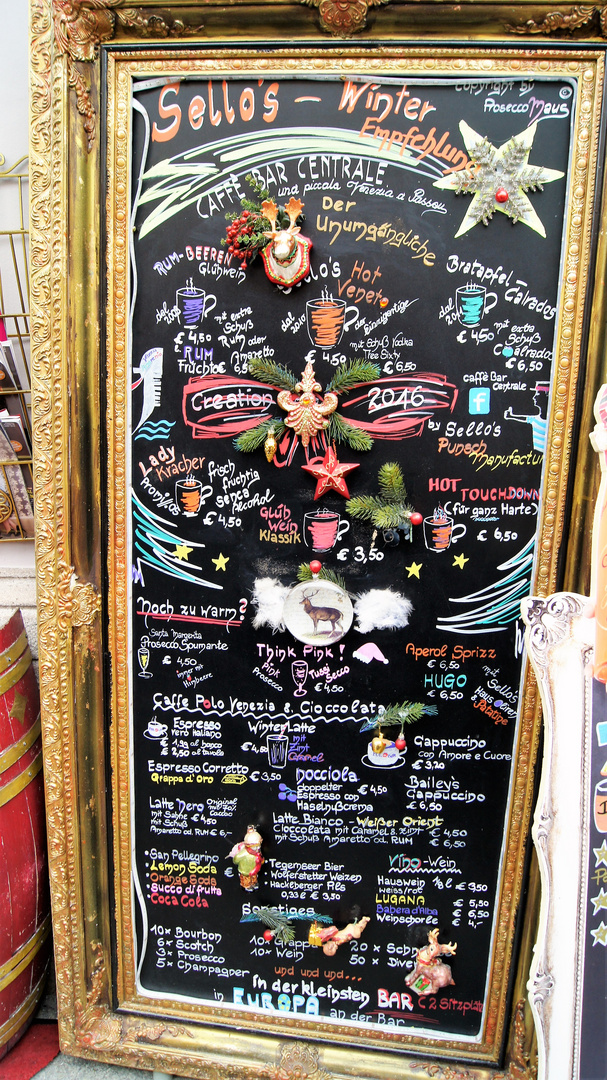 Copyright by ©
ProseccoMaus
Sello's - Winter
Empfehlung
CAFFÈ BAR CENTRALE
und piccola Venezia a Passau
Der
Unumgängliche
RUM-BEEREN
Glühwein
€ 4,50
mit extra
Schuß
Rum oder
Amaretto
€ 6,50
& RUM
Früchte
Hot
Vener
dal 2010
der Einzigartige
mit Schuß Vodka
€ 4,50
€ 6,50
Bratapfel-
Calvados
dal
€ 4,50
mit extra
Schuß
Calvados
€ 6,50
Creation 2016
caffè Bar
Centrale
f
by Sello's
Punsch
Manufactur
Lady
Kracher
Promillos
frisch
fruchtig
senca
Alcohol
€ 4,50
Glüh
Wein
Klassik
€ 3,50
HOT TOUCHDOWN
(für ganz Harte)
€ 6,50
Noch zu warm?
Santa Margerita
Prosecco Spumante
€ 4,50
immer mit
Himbeere
Think Pink!
Pink
Prosecco
Tussi
Secco
€ 4,50
Aperol Sprizz
€ 6,50
HUGO
€ 6,50
mit
Sello's
Haus
& Patatine
Caffe Polo Venezia & Cioccolata
Espresso
vero italiano
€ 1,99 al banco
€ 2,50 al tavolo
Winter Latte
€ 4,50
mit
Zimt
Caramel
Cappuccino
con Amore e Cuore
€ 3,70
Espresso Corretto
Grappa d'Oro
€ 3,50
Nocciola
doppelter
Espresso con
Haselnußcrema
€ 4,50
Bailey's
Cappuccino
€ 6,50
Latte Nero
Original
Cacao
mit Sahne € 4,50
mit Schuß
Amaretto od. RUM € 6,-
Latte Bianco - Weißer Orient
Cioccolata mit Caramel & Zimt - € 4,50
mit Schuß Amaretto od. RUM € 6,50
• San Pellegrino
• Lemon Soda
• Orange Soda
• Succo di frutta
• Coca Cola
€
• Tegernseer Bier
• Wolferstetter Weizen
• Hackelberger Pils
0,33l € 3,50
Vino-Wein
Hauswein ⅛ l € 3,50
weiss/rot
LUGANA € 5,50
Babera d'Alba € 6,50
Weinschorle € 4,-
Sonstiges
10x Bourbon
6x Scotch
3x Prosecco
5x Champagner
10x Grapp
10x Wein
20x Schn
50x Dive
und und und...
In der kleinsten BAR
in EUROPA an der Bar